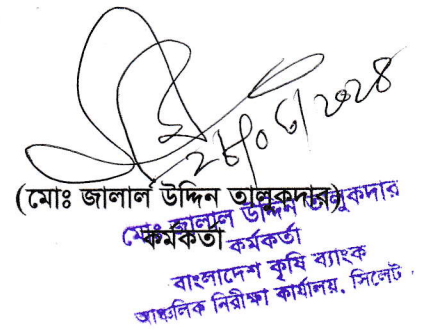 (মোঃ জালাল উদ্দিন তালুকদার)
কর্মকর্তা
মোঃ জালাল উদ্দিন তালুকদার
কর্মকর্তা
বাংলাদেশ কৃষি ব্যাংক
আঞ্চলিক নিরীক্ষা কার্যালয়, সিলেট